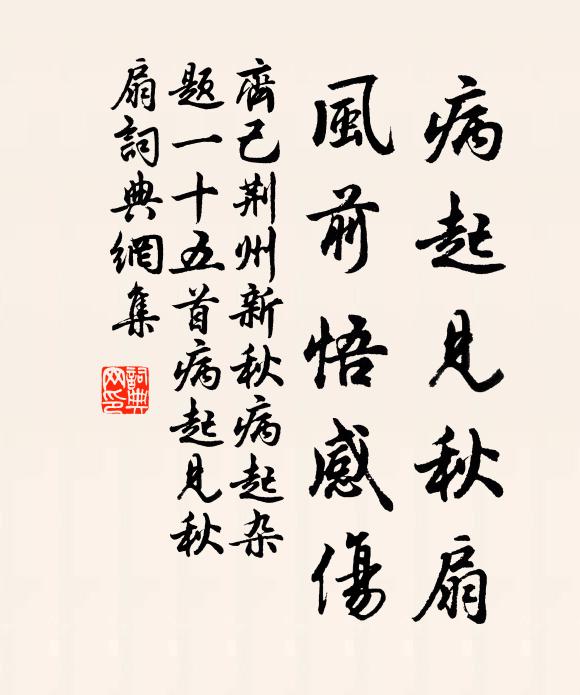 病起見秋扇
風前悟感傷
齊己荆州新秋病起杂
题一十五首病起見秋
扇詞典網集
詞典
网印